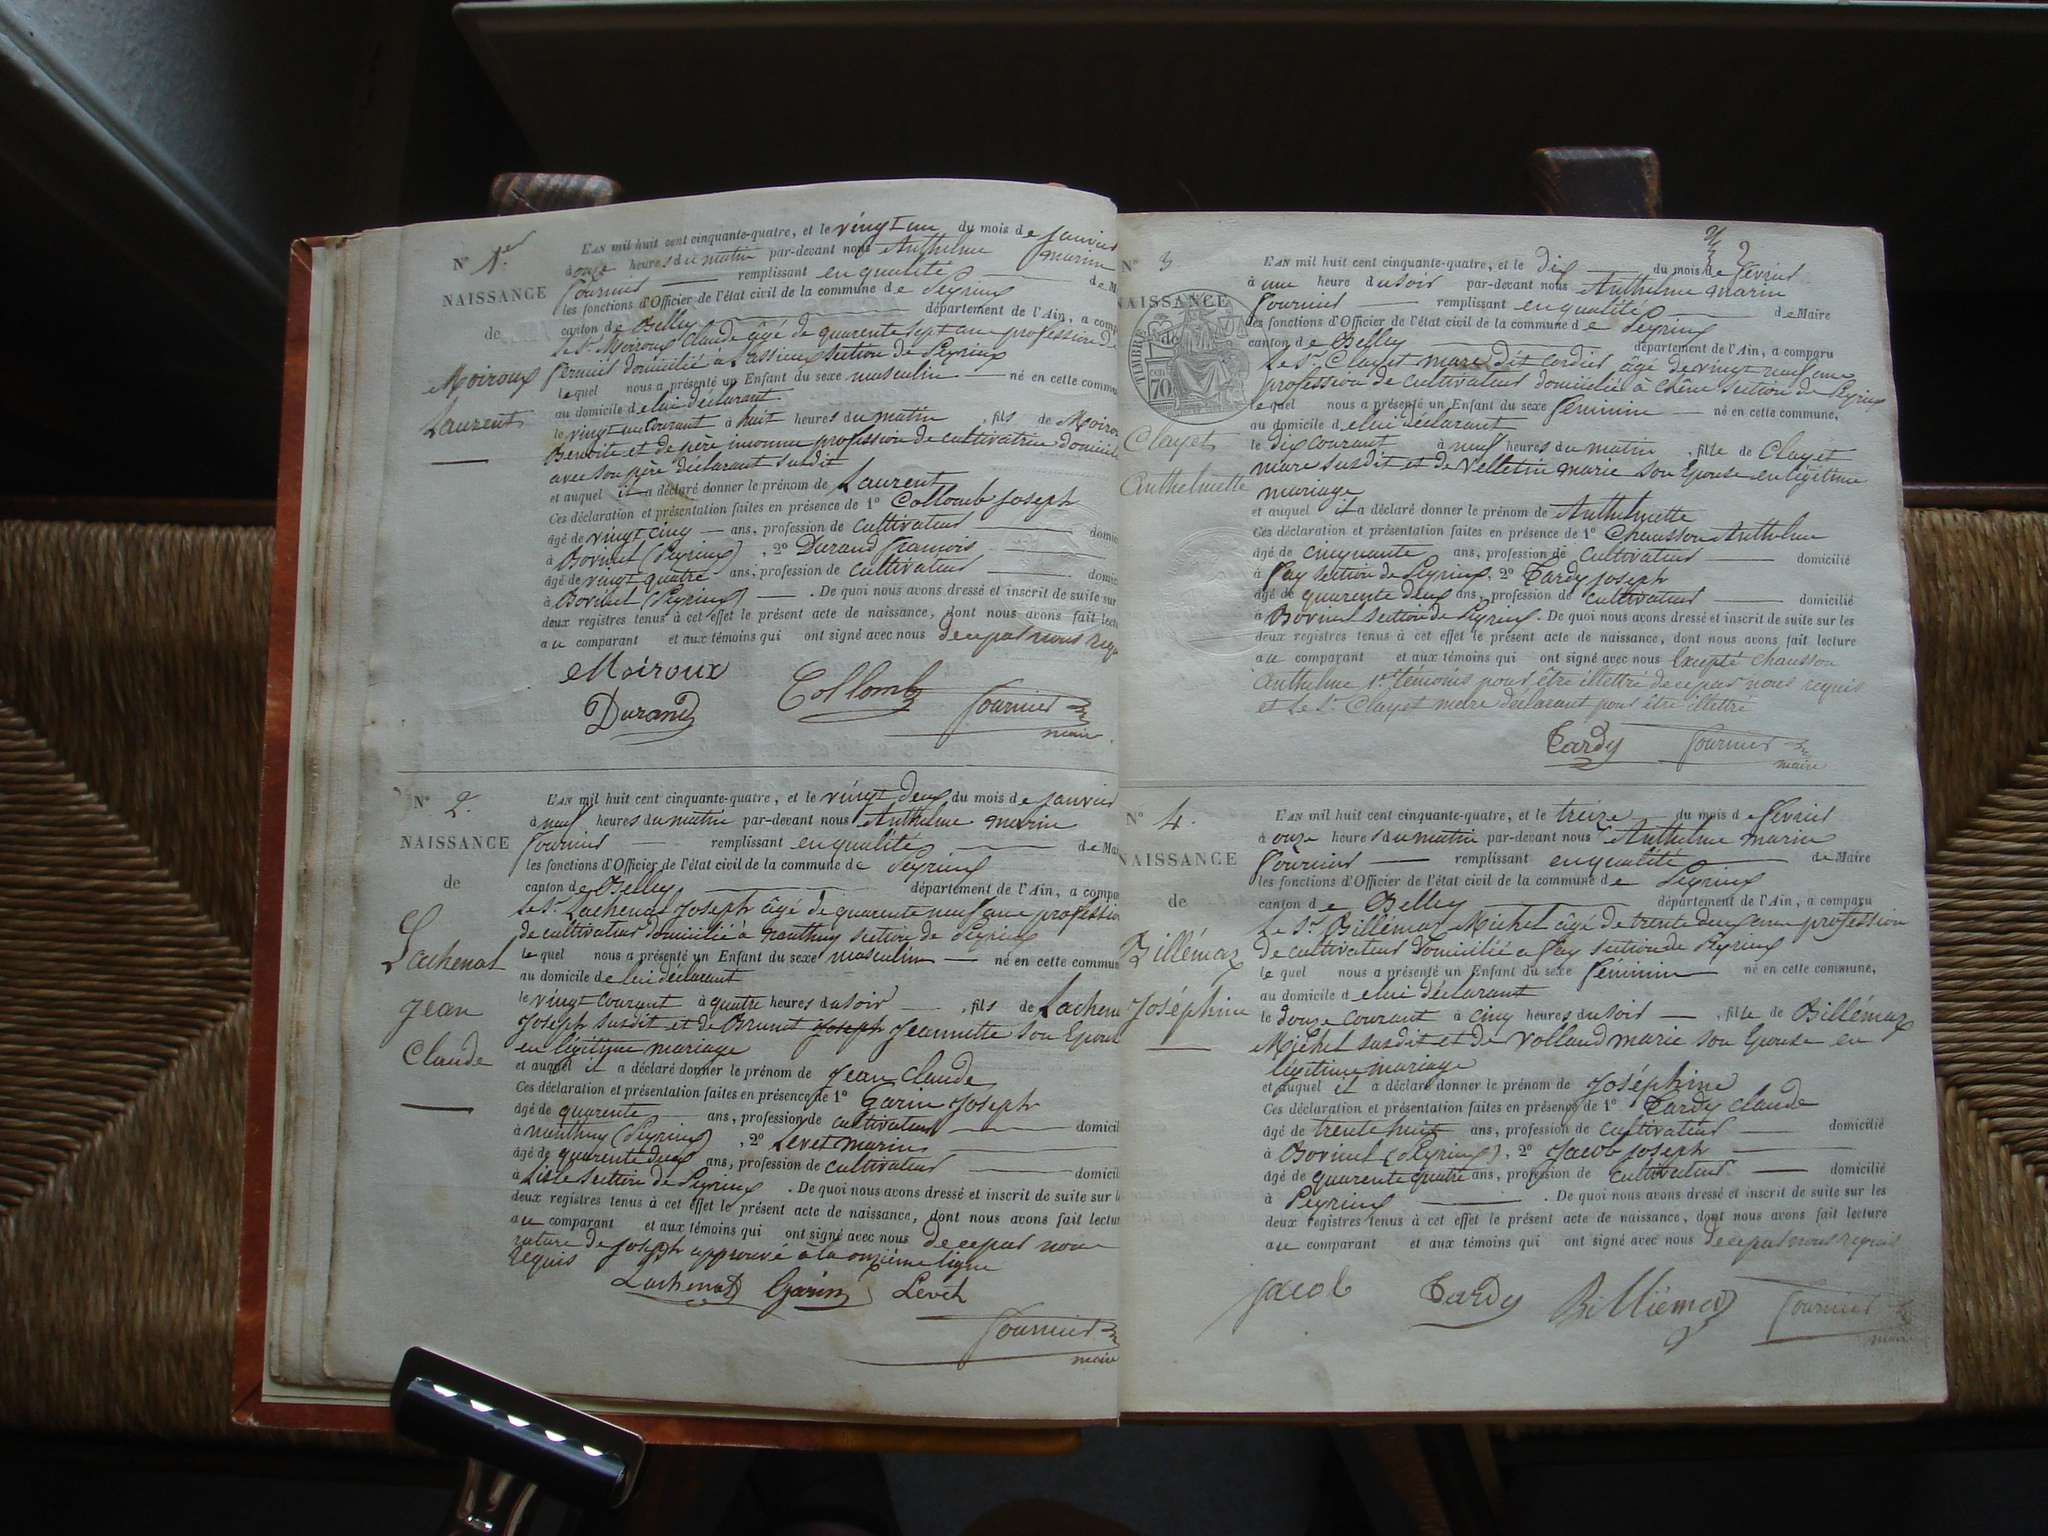 N° 1er
NAISSANCE
de
Moiroux
Laurent
L'AN mil huit cent cinquante-quatre, et le vingt un du mois de janvier
à onze heures du matin par-devant nous Anthelme marin
fournier remplissant en qualité de M
les fonctions d'Officier de l'état civil de la commune de Peyrieux
canton de Belley département de l'Ain, a comp
le Sr. Moiroux Claude âgé de quarente sept ans profession de
fermier domicilié à Lassieux section de Peyrieux
lequel nous a présenté un Enfant du sexe masculin né en cette commu
au domicile de lui déclarant
le vingt un courant à huit heures du matin, fils de Moirou
Benoite et de père inconnu profession de cultivatrice domicil
avec son père déclarant susdit
et auquel il a déclaré donner le prénom de Laurent
Ces déclaration et présentation faites en présence de 1° Collomb Joseph
âgé de vingt cinq ans, profession de cultivateur domic
à Bovinel (Peyrieux), 2° Durand françois
âgé de vingt quatre ans, profession de cultivateur domic
à Bovinel (Peyrieux). De quoi nous avons dressé et inscrit de suite sur
deux registres tenus à cet effet le présent acte de naissance, dont nous avons fait lectu
au comparant et aux témoins qui ont signé avec nous de ce par nous requ
Moiroux
Collomb
Durand
fournier
maire
N° 2.
NAISSANCE
de
Lachenal
Jean
Claude
L'AN mil huit cent cinquante-quatre, et le vingt deux du mois de janvier
à neuf heures du matin par-devant nous Anthelme marin
fournier remplissant en qualité de Mai
les fonctions d'Officier de l'état civil de la commune de Peyrieux
canton de Belley département de l'Ain, a compa
le Sr. Lachenal Joseph âgé de quarente neuf ans profession
de cultivateur domicilié à nanthuy section de Peyrieux
lequel nous a présenté un Enfant du sexe masculin né en cette commun
au domicile de lui déclarant
le vingt courant à quatre heures du soir, fils de Lachena
Joseph susdit et de Brunet Joseph Jeannette son Epous
en légitime mariage
et auquel il a déclaré donner le prénom de Jean Claude
Ces déclaration et présentation faites en présence de 1° Garin Joseph
âgé de quarente ans, profession de cultivateur domicil
à nanthuy (Peyrieux), 2° Levet marin
âgé de quarente deux ans, profession de cultivateur domicil
à Lisle section de Peyrieux. De quoi nous avons dressé et inscrit de suite sur l
deux registres tenus à cet effet le présent acte de naissance, dont nous avons fait lectur
au comparant et aux témoins qui ont signé avec nous de ce par nous
requis rature de Joseph approuvé à la onzième ligne
Lachenal Garin Levet
fournier
maire
2
N° 3
NAISSANCE
TIMBRE
70
Clayet
Anthelmette
L'AN mil huit cent cinquante-quatre, et le dix du mois de février
à une heure du soir par-devant nous Anthelme marin
fournier remplissant en qualité de Maire
les fonctions d'Officier de l'état civil de la commune de Peyrieux
canton de Belley département de l'Ain, a comparu
le Sr. Clayet marc dit Cordier âgé de vingt neuf ans
profession de cultivateur domicilié à chêne section de Peyrieux
lequel nous a présenté un Enfant du sexe féminin né en cette commune,
au domicile de lui déclarant
le dix courant à neuf heures du matin, fille de Clayet
marc susdit et de Velletin marie son Epouse en légitime
mariage
et auquel il a déclaré donner le prénom de Anthelmette
Ces déclaration et présentation faites en présence de 1° Chausson Anthelme
âgé de cinquante ans, profession de cultivateur domicilié
à fay section de Peyrieux, 2° Tardy Joseph
âgé de quarente deux ans, profession de cultivateur domicilié
à Bovinel section de Peyrieux. De quoi nous avons dressé et inscrit de suite sur les
deux registres tenus à cet effet le présent acte de naissance, dont nous avons fait lecture
au comparant et aux témoins qui ont signé avec nous Excepté chausson
Anthelme 1er témoins pour être illettré de ce par nous requis
et le Sr. Clayet marc déclarant pour être illettré
Tardy fournier
maire
N° 4.
NAISSANCE
de
Billémaz
Joséphine
L'AN mil huit cent cinquante-quatre, et le treize du mois de février
à onze heures du matin par-devant nous Anthelme marin
fournier remplissant en qualité de Maire
les fonctions d'Officier de l'état civil de la commune de Peyrieux
canton de Belley département de l'Ain, a comparu
le Sr. Billémaz Michel âgé de trente deux ans profession
de cultivateur domicilié a fay section de Peyrieux
lequel nous a présenté un Enfant du sexe féminin né en cette commune,
au domicile de lui déclarant
le douze courant à cinq heures du soir, fille de Billémaz
Michel susdit et de Volland marie son Epouse en
légitime mariage
et auquel il a déclaré donner le prénom de Joséphine
Ces déclaration et présentation faites en présence de 1° Tardy Claude
âgé de trente huit ans, profession de cultivateur domicilié
à Bovinel (Peyrieux), 2° Jacob Joseph
âgé de quarente quatre ans, profession de cultivateur domicilié
à Peyrieux. De quoi nous avons dressé et inscrit de suite sur les
deux registres tenus à cet effet le présent acte de naissance, dont nous avons fait lecture
au comparant et aux témoins qui ont signé avec nous de ce par nous requis
Jacob Tardy Billiémaz fournier
maire